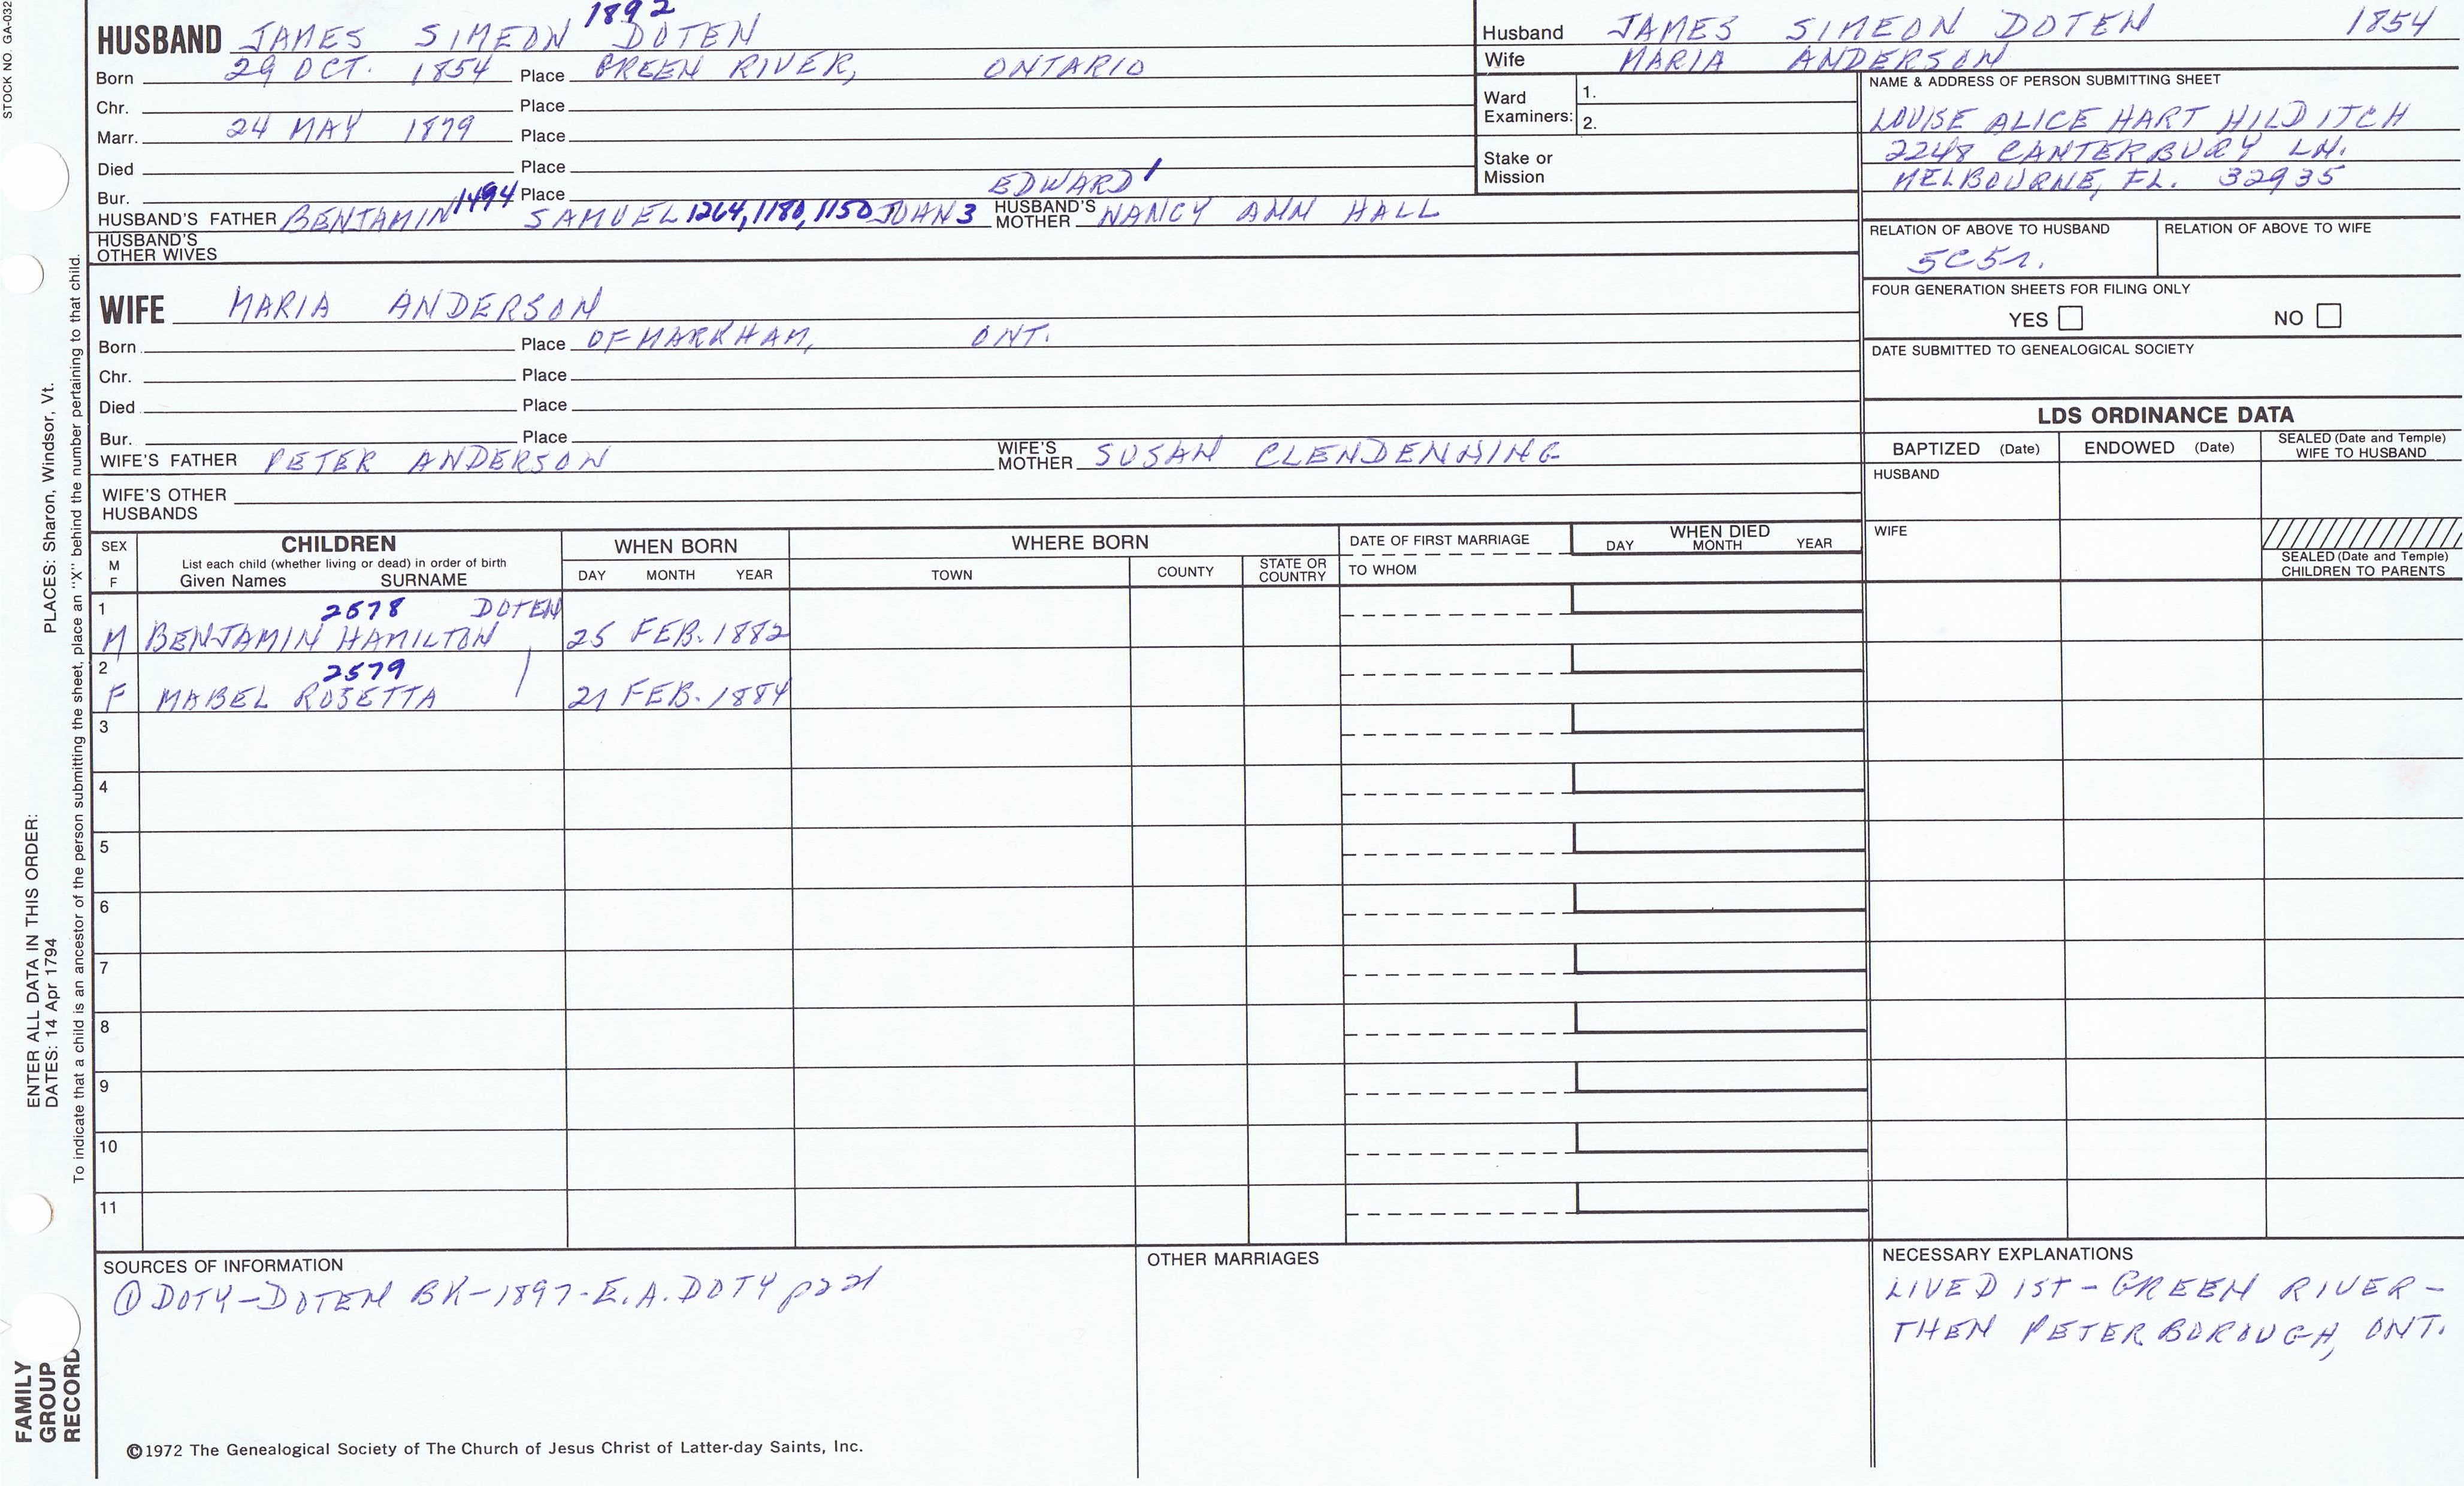 STOCK NO. GA-032
1892
HUSBAND JAMES SIMEON DOTEN
Born 29 OCT. 1854 Place GREEN RIVER, ONTARIO
Chr. Place
Marr. 24 MAY 1879 Place
Died Place
Bur. Place EDWARD 1
HUSBAND'S FATHER BENJAMIN 1494 SAMUEL 1264, 1180, 1150 JOHN 3 HUSBAND'S MOTHER NANCY ANN HALL
HUSBAND'S OTHER WIVES
WIFE MARIA ANDERSON
Born Place OF MARKHAM, ONT.
Chr. Place
Died Place
Bur. Place
WIFE'S FATHER PETER ANDERSON WIFE'S MOTHER SUSAN CLENDENNING
WIFE'S OTHER HUSBANDS
Husband JAMES SIMEON DOTEN 1854
Wife MARIA ANDERSON
Ward Examiners: 1.
2.
Stake or Mission
NAME & ADDRESS OF PERSON SUBMITTING SHEET
LOUISE ALICE HART HILDITCH
2248 CANTERBURY LN.
MELBOURNE, FL. 32935
RELATION OF ABOVE TO HUSBAND RELATION OF ABOVE TO WIFE
5C5r.
FOUR GENERATION SHEETS FOR FILING ONLY
YES NO
DATE SUBMITTED TO GENEALOGICAL SOCIETY
LDS ORDINANCE DATA
BAPTIZED (Date) ENDOWED (Date) SEALED (Date and Temple) WIFE TO HUSBAND
HUSBAND
WIFE
SEALED (Date and Temple) CHILDREN TO PARENTS
SEX M F
CHILDREN
List each child (whether living or dead) in order of birth
Given Names SURNAME
WHEN BORN
DAY MONTH YEAR
WHERE BORN
TOWN COUNTY STATE OR COUNTRY
DATE OF FIRST MARRIAGE
TO WHOM
WHEN DIED
DAY MONTH YEAR
1 2578 DOTEN
M BENJAMIN HAMILTON 25 FEB. 1882
2 2579
F MABEL ROSETTA 21 FEB. 1884
3
4
5
6
7
8
9
10
11
SOURCES OF INFORMATION
① DOTY-DOTEN BK-1897-E.A.DOTY p221
OTHER MARRIAGES
NECESSARY EXPLANATIONS
LIVED 1ST - GREEN RIVER -
THEN PETERBOROUGH, ONT.
©1972 The Genealogical Society of The Church of Jesus Christ of Latter-day Saints, Inc.
FAMILY
GROUP
RECORD
ENTER ALL DATA IN THIS ORDER:
DATES: 14 Apr 1794 PLACES: Sharon, Windsor, Vt.
To indicate that a child is an ancestor of the person submitting the sheet, place an "X" behind the number pertaining to that child.